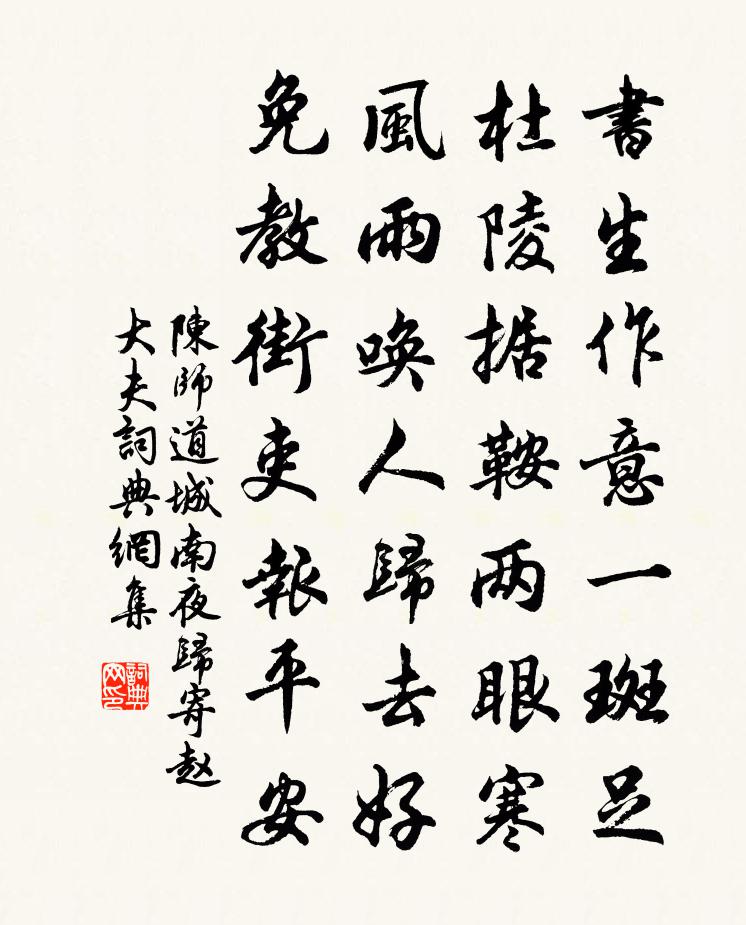 書生作意一斑足
杜陵据鞍两眼寒
風雨唤人歸去好
免教街吏報平安
陳師道城南夜歸寄赵
大夫詞典網集
詞典網印